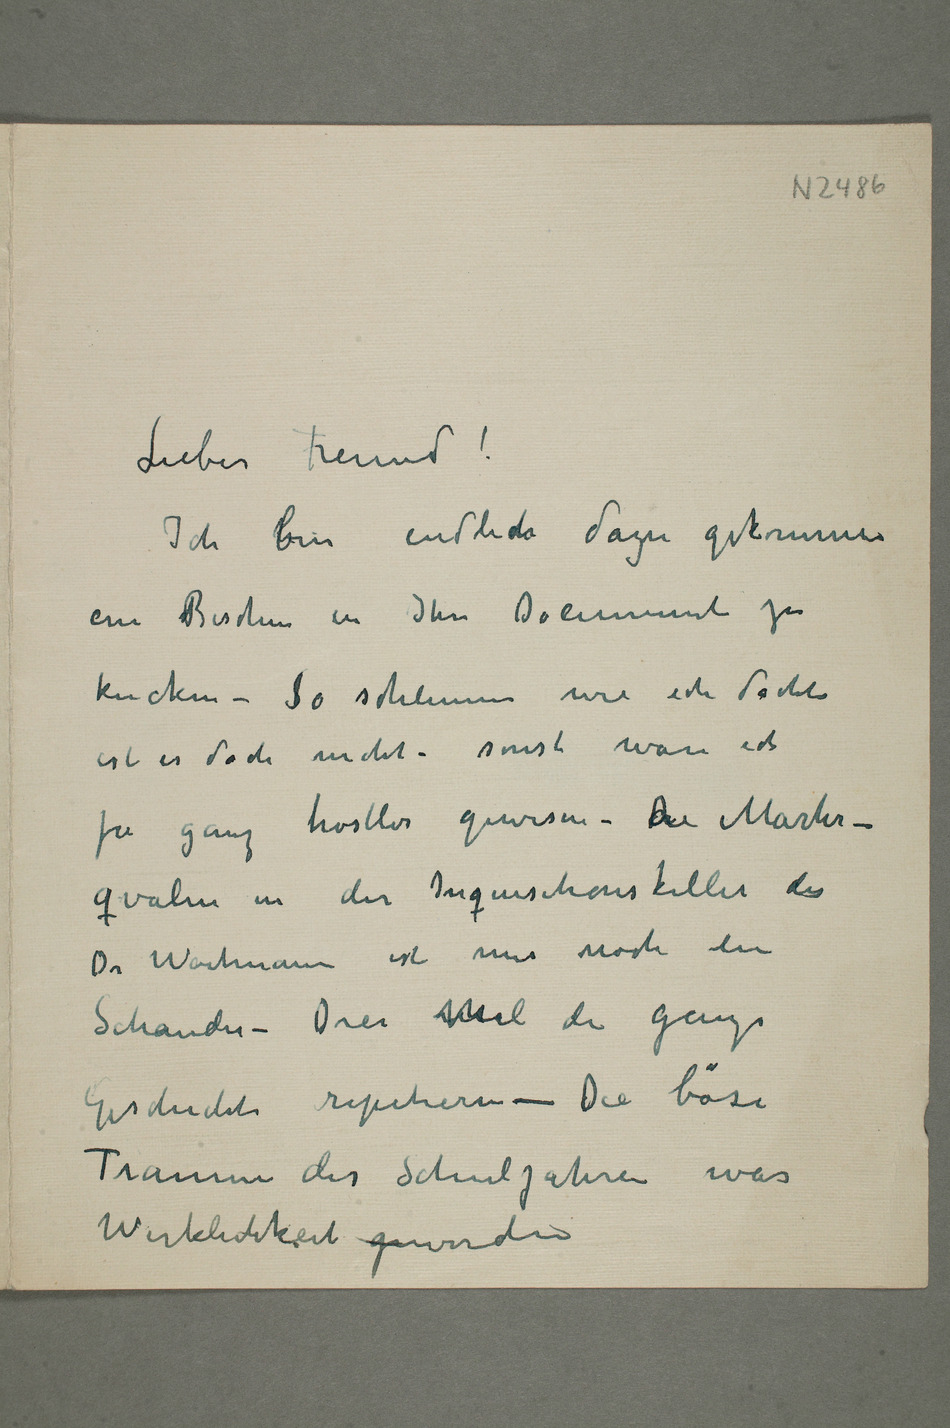 N2486
Lieber Freund!
Ich bin endlich dazu gekommen
ein Bischen in Ihr Document zu
kucken – So schlimm wie ich dachte
ist es doch nicht – sonst wäre ich
ja ganz trostlos gewesen – Die Marter-
qvalen in der Inqusitionskeller des
Dr Wartmann ist mir noch ein
Schander – Drei Mal die ganze
Geschichte repetieren – Die böse
Traume des Schuljahren war
Werklichkeit geworden